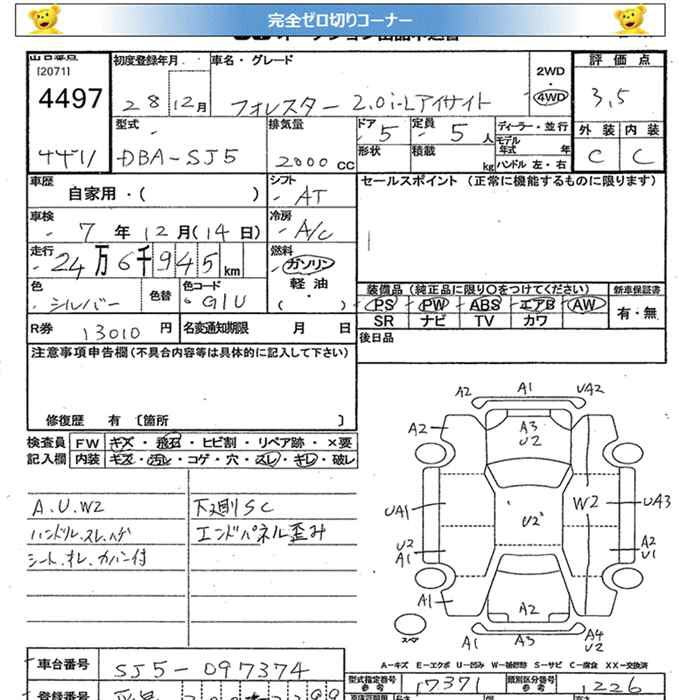 完全ゼロ切りコーナー
[2071]
4497
初度登録年月
28 12月
車名・グレード
フォレスター 2.0i-Lアイサイト
2WD
4WD
評価点
3.5
外装 内装
C C
型式
DBA-SJ5
排気量
2000 CC
ドア 5
定員 5 人
形状
積載 kg
ディーラー・並行
モデル年式 年
ハンドル 左・右
車歴
自家用・( )
シフト
AT
セールスポイント (正常に機能するものに限ります)
車検
7年12月(14日)
冷房
A/C
走行
24万6千945km
燃料
ガソリン
軽油
( )
色
シルバー
色替
色コード
G1U
装備品(純正品に限り○をつけてください)
PS PW ABS エアB AW
SR ナビ TV カワ
新車保証書
有・無
R券 13010円
名変通知期限 月 日
後日品
注意事項申告欄(不具合内容等は具体的に記入して下さい)
修復歴 有 〔箇所 〕
検査員記入欄
FW キズ・飛石・ヒビ割・リペア跡・×要
内装 キズ・汚レ・コゲ・穴・スレ・キレ・破レ
A.U.W2
ハンドル.スレ.ハゲ
シート.オレ.カバン付
下廻りSC
エンドパネル歪み
A2 A1 UA2
A2 A3 U2
UA1 U2 W2 UA3
U2 A1
A2 U1
A1 A2
A1 A3 A4 U2
A-キズ E-エクボ U-凹み W-補修跡 S-サビ C-腐食 XX-交換済
車台番号 SJ5-097374
型式指定番号 参考 17371
類別区分番号 参考 1226
登録番号